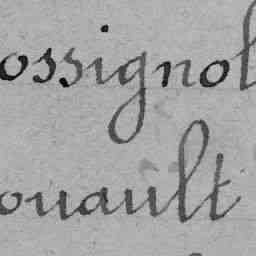 ossignol
ouault